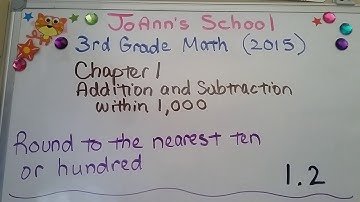 JoAnn's School
3rd Grade Math (2015)
Chapter 1
Addition and Subtraction
within 1,000
Round to the nearest ten
or hundred
1.2